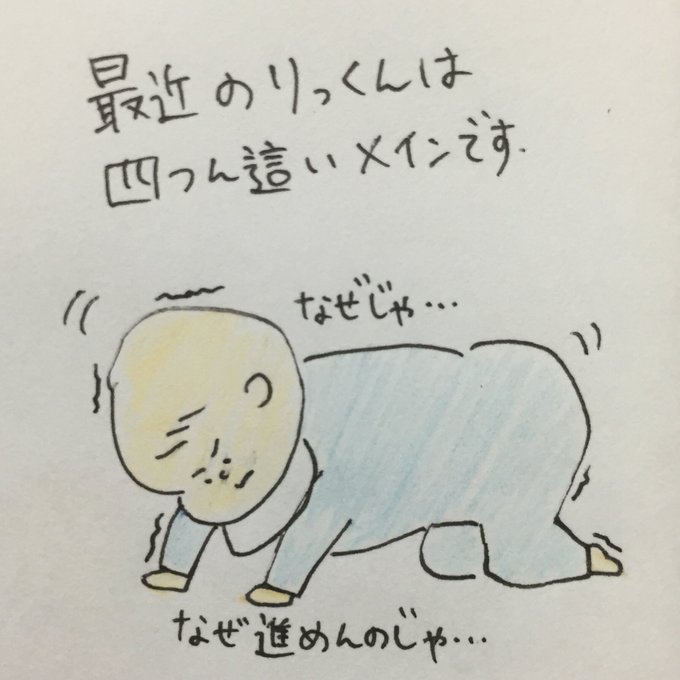 最近のりっくんは
四つん這いメインです.
なぜじゃ…
なぜ進めんのじゃ…